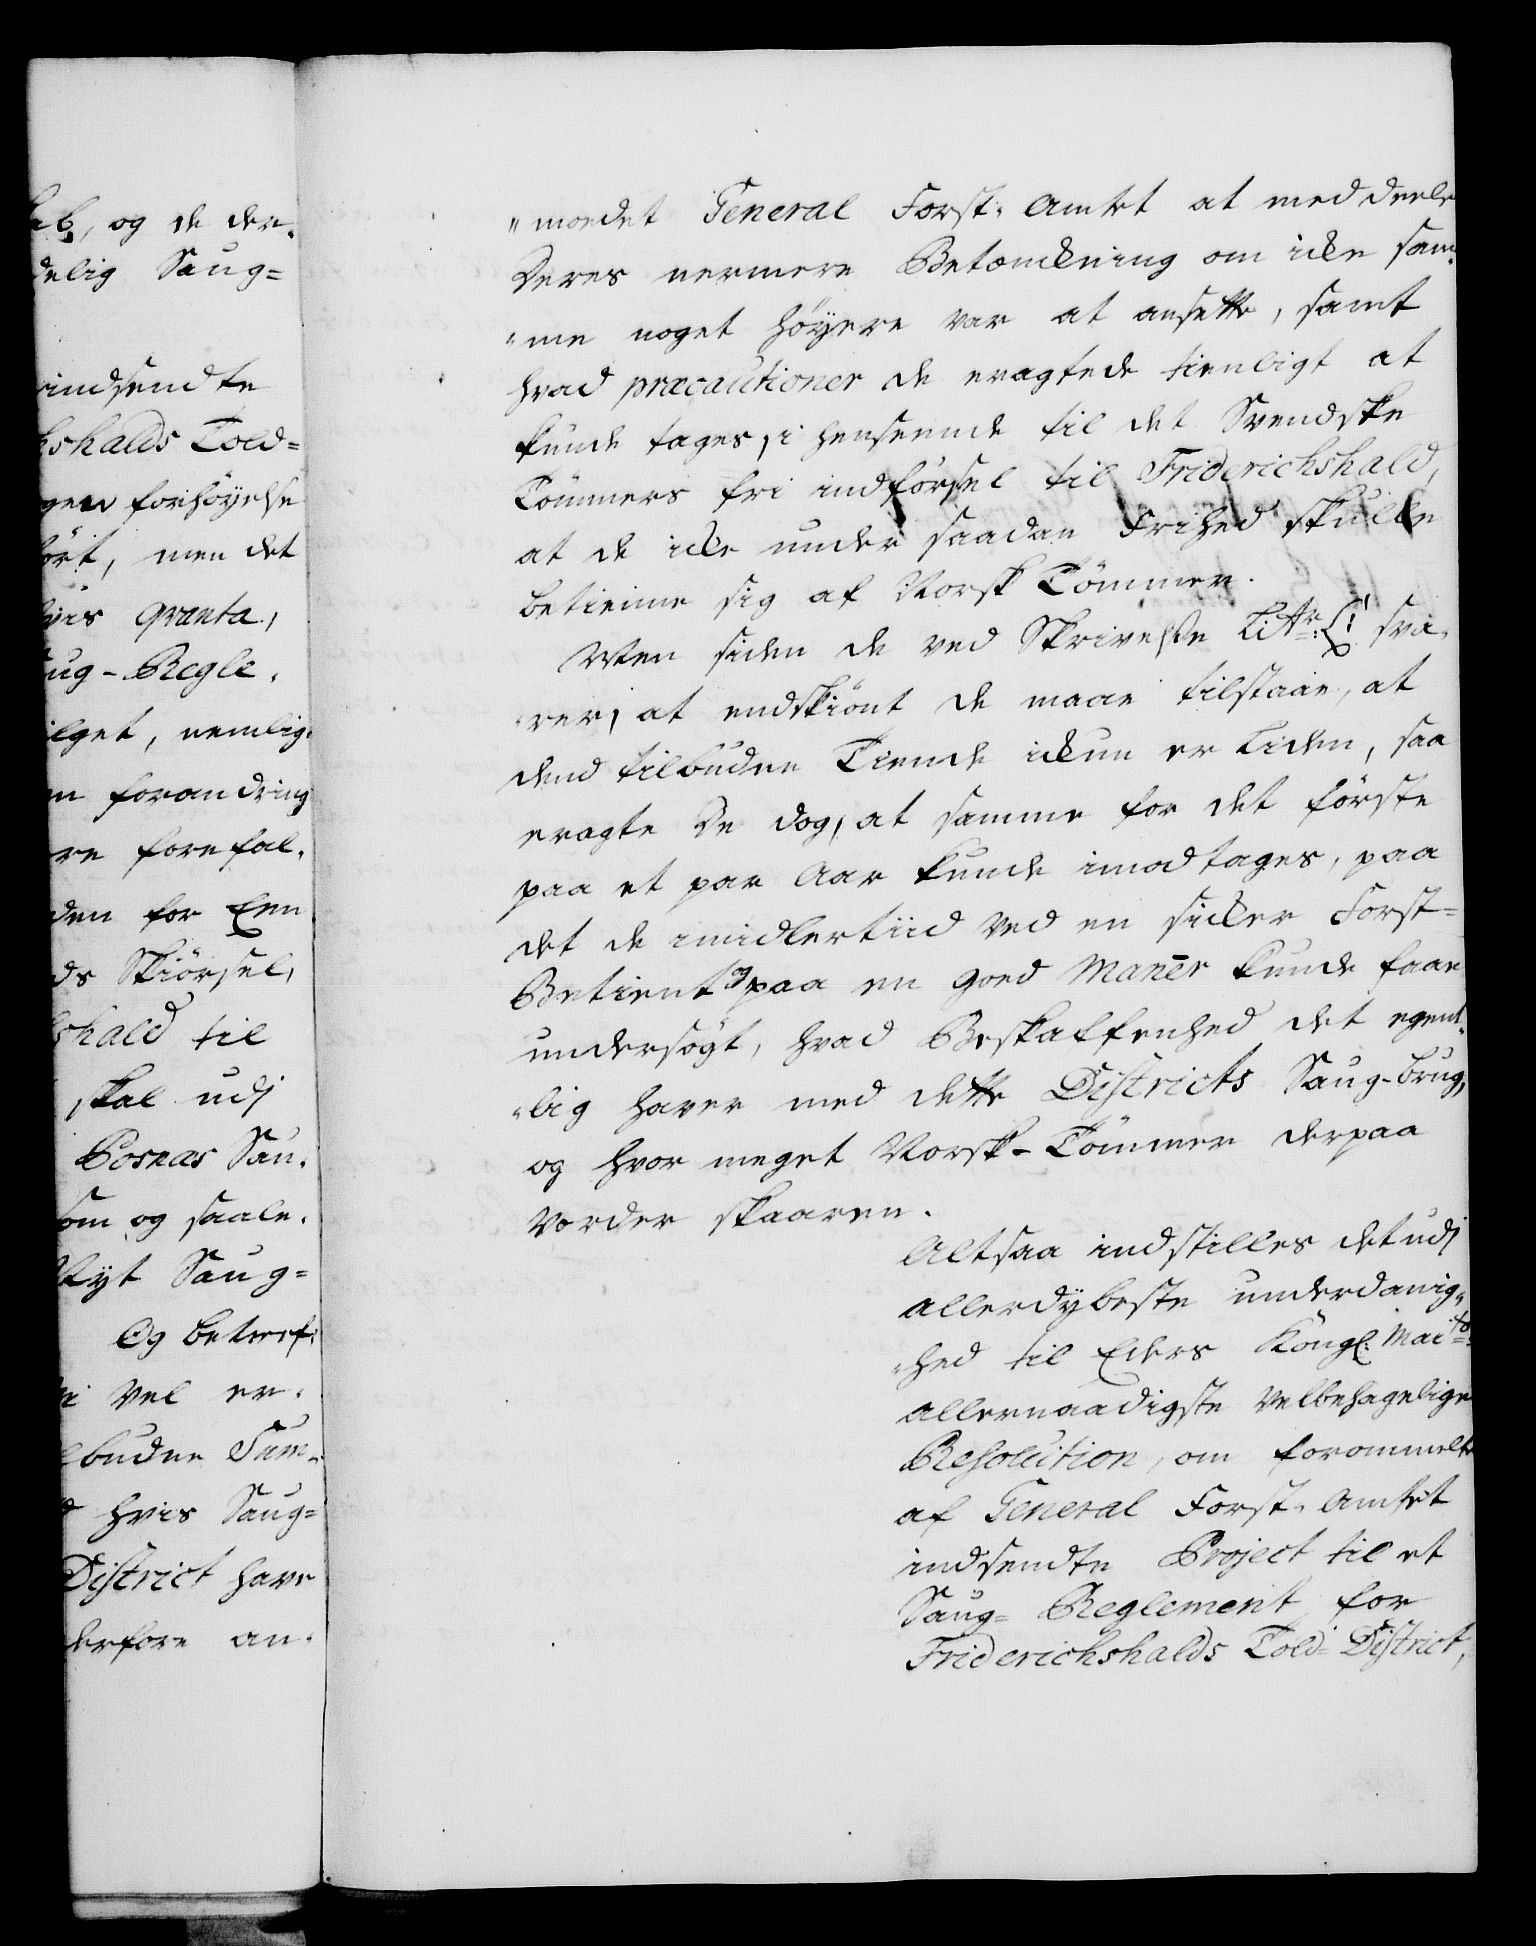 ab, og de der-
delig Saug=
indsendte
kshalds Told=
gen forhöyelse
ört, men det
vis qvanta,
ug-Regle-
ilget, nemlig.
en forandring
re forefal-
den for Een
ds Skiörsel,
shald til
skal udj
Posnas Sau-
som og saale-
Og betref-
vel er-
budne Sum-
hvis Saug=
District have
derfore an-
"modet General Forst-Amtet at meddeele
Deres nermere Betænckning om icke sam-
"me noget höyere var at ansette, samt
hvad præcautioner de eragtede tienligt at
kunde tages, i henseende til det Svendske
Tömmers fri indförsel til Friderichshald,
at de icke under saadan Frihed skulle
betienne sig af Norsk Tömmer.
Men siden de ved Skrivelse Littr: C! sva-
"rer, at endskiönt de maae tilstaae, at
dend tilbudne Tiende ickun er liden, saa
eragte De dog, at samme for det förste
paa et par Aar kunde imodtages, paa
det de imidlertiid ved en sicker Forst=
Betient og paa en goed Maneer kunde faae
undersögt, hvad Beskaffenhed det egent-
"lig haver med dette Districts Saug-brug,
og hvor meget Norsk-Tömmer derpaa
vorder skaaren.
Altsaa indstilles det udj
allerdybeste underdanig-
"hed til Eders Kongl: Maits
allernaadigste velbehagelige
Resolution, om forommelte
af General Forst-Amtet
indsendte Project til et
Saug=Reglement for
Friderichshalds Told-District,